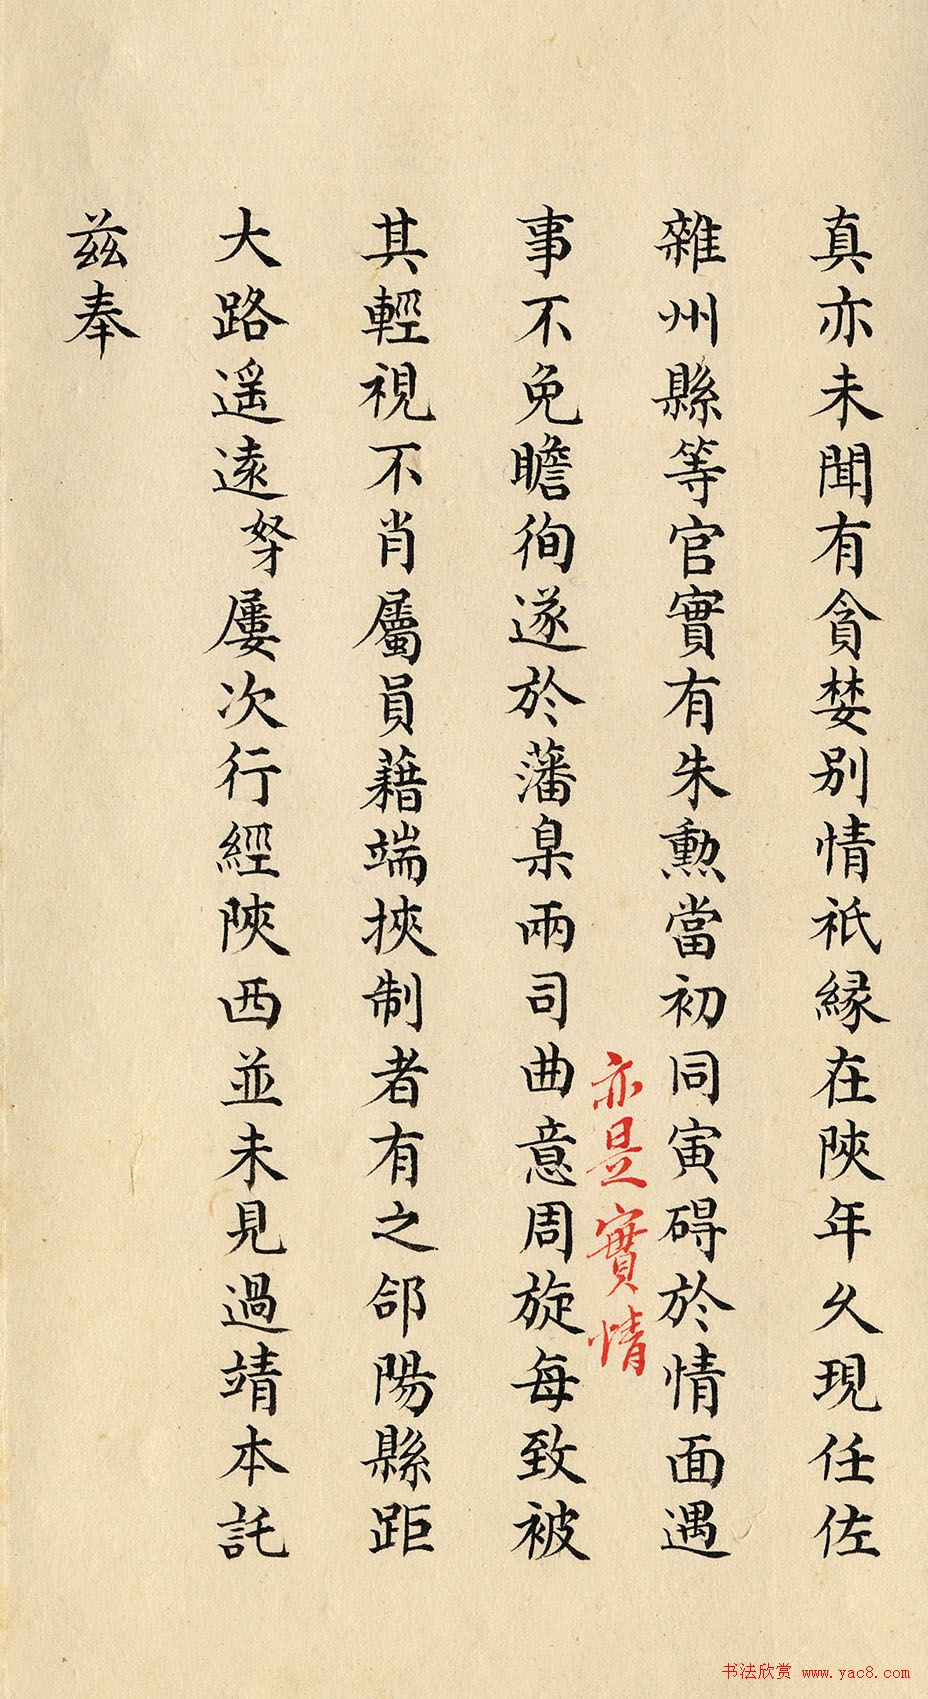 真亦未聞有貪婪別情祇縁在陜年久現任佐
雜州縣等官實有朱勲當初同寅碍於情面遇
亦是實情
事不免瞻徇遂於藩臬兩司曲意周旋每致被
其輕視不肖屬員藉端挾制者有之郃陽縣距
大路遥遠奴才屢次行經陜西並未見過靖本託
兹奉
书法欣赏 www.yac8.com